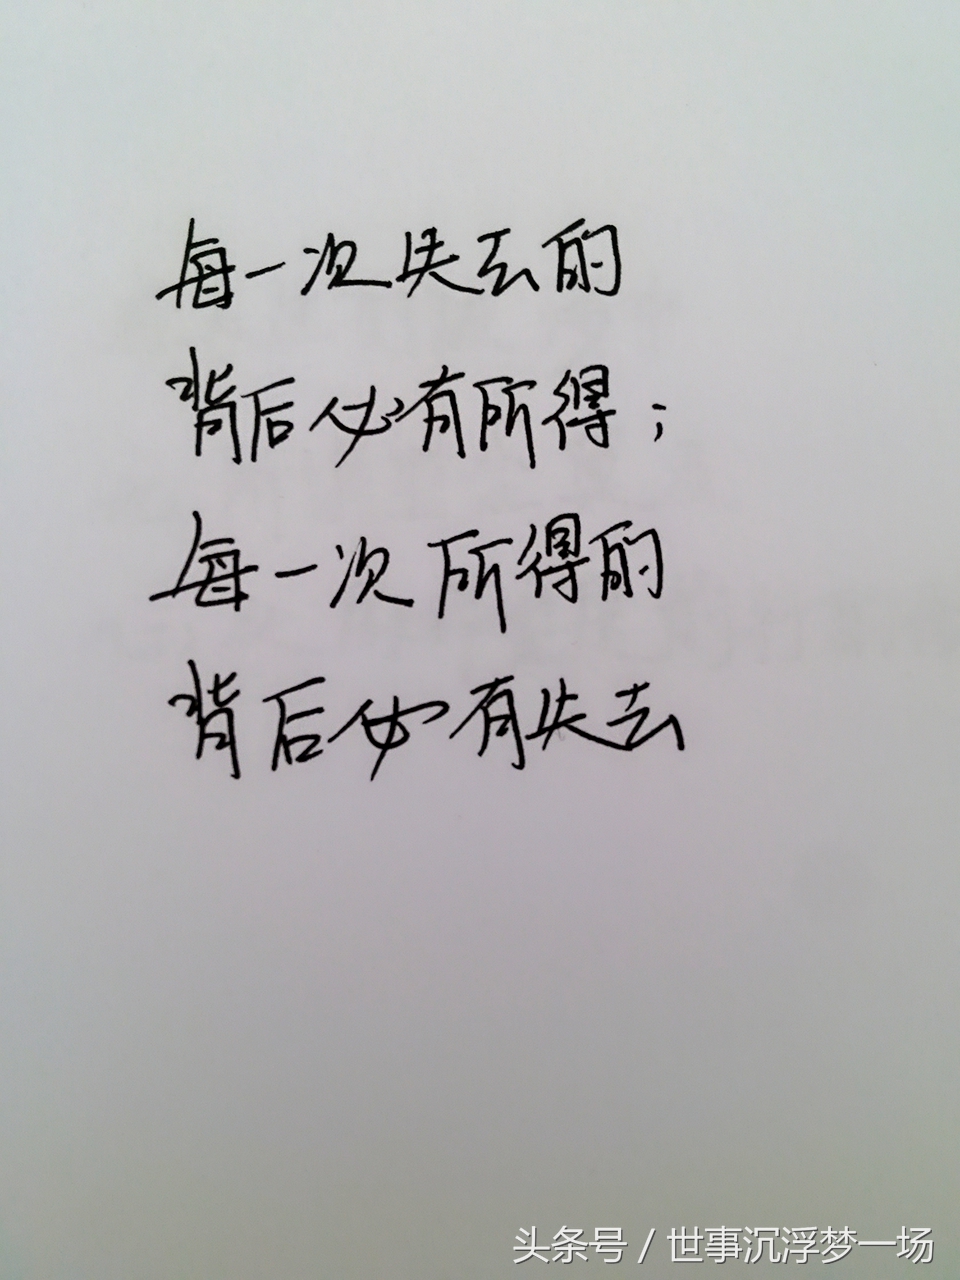 每一次失去的
背后必有所得；
每一次所得的
背后必有失去
头条号 / 世事沉浮梦一场